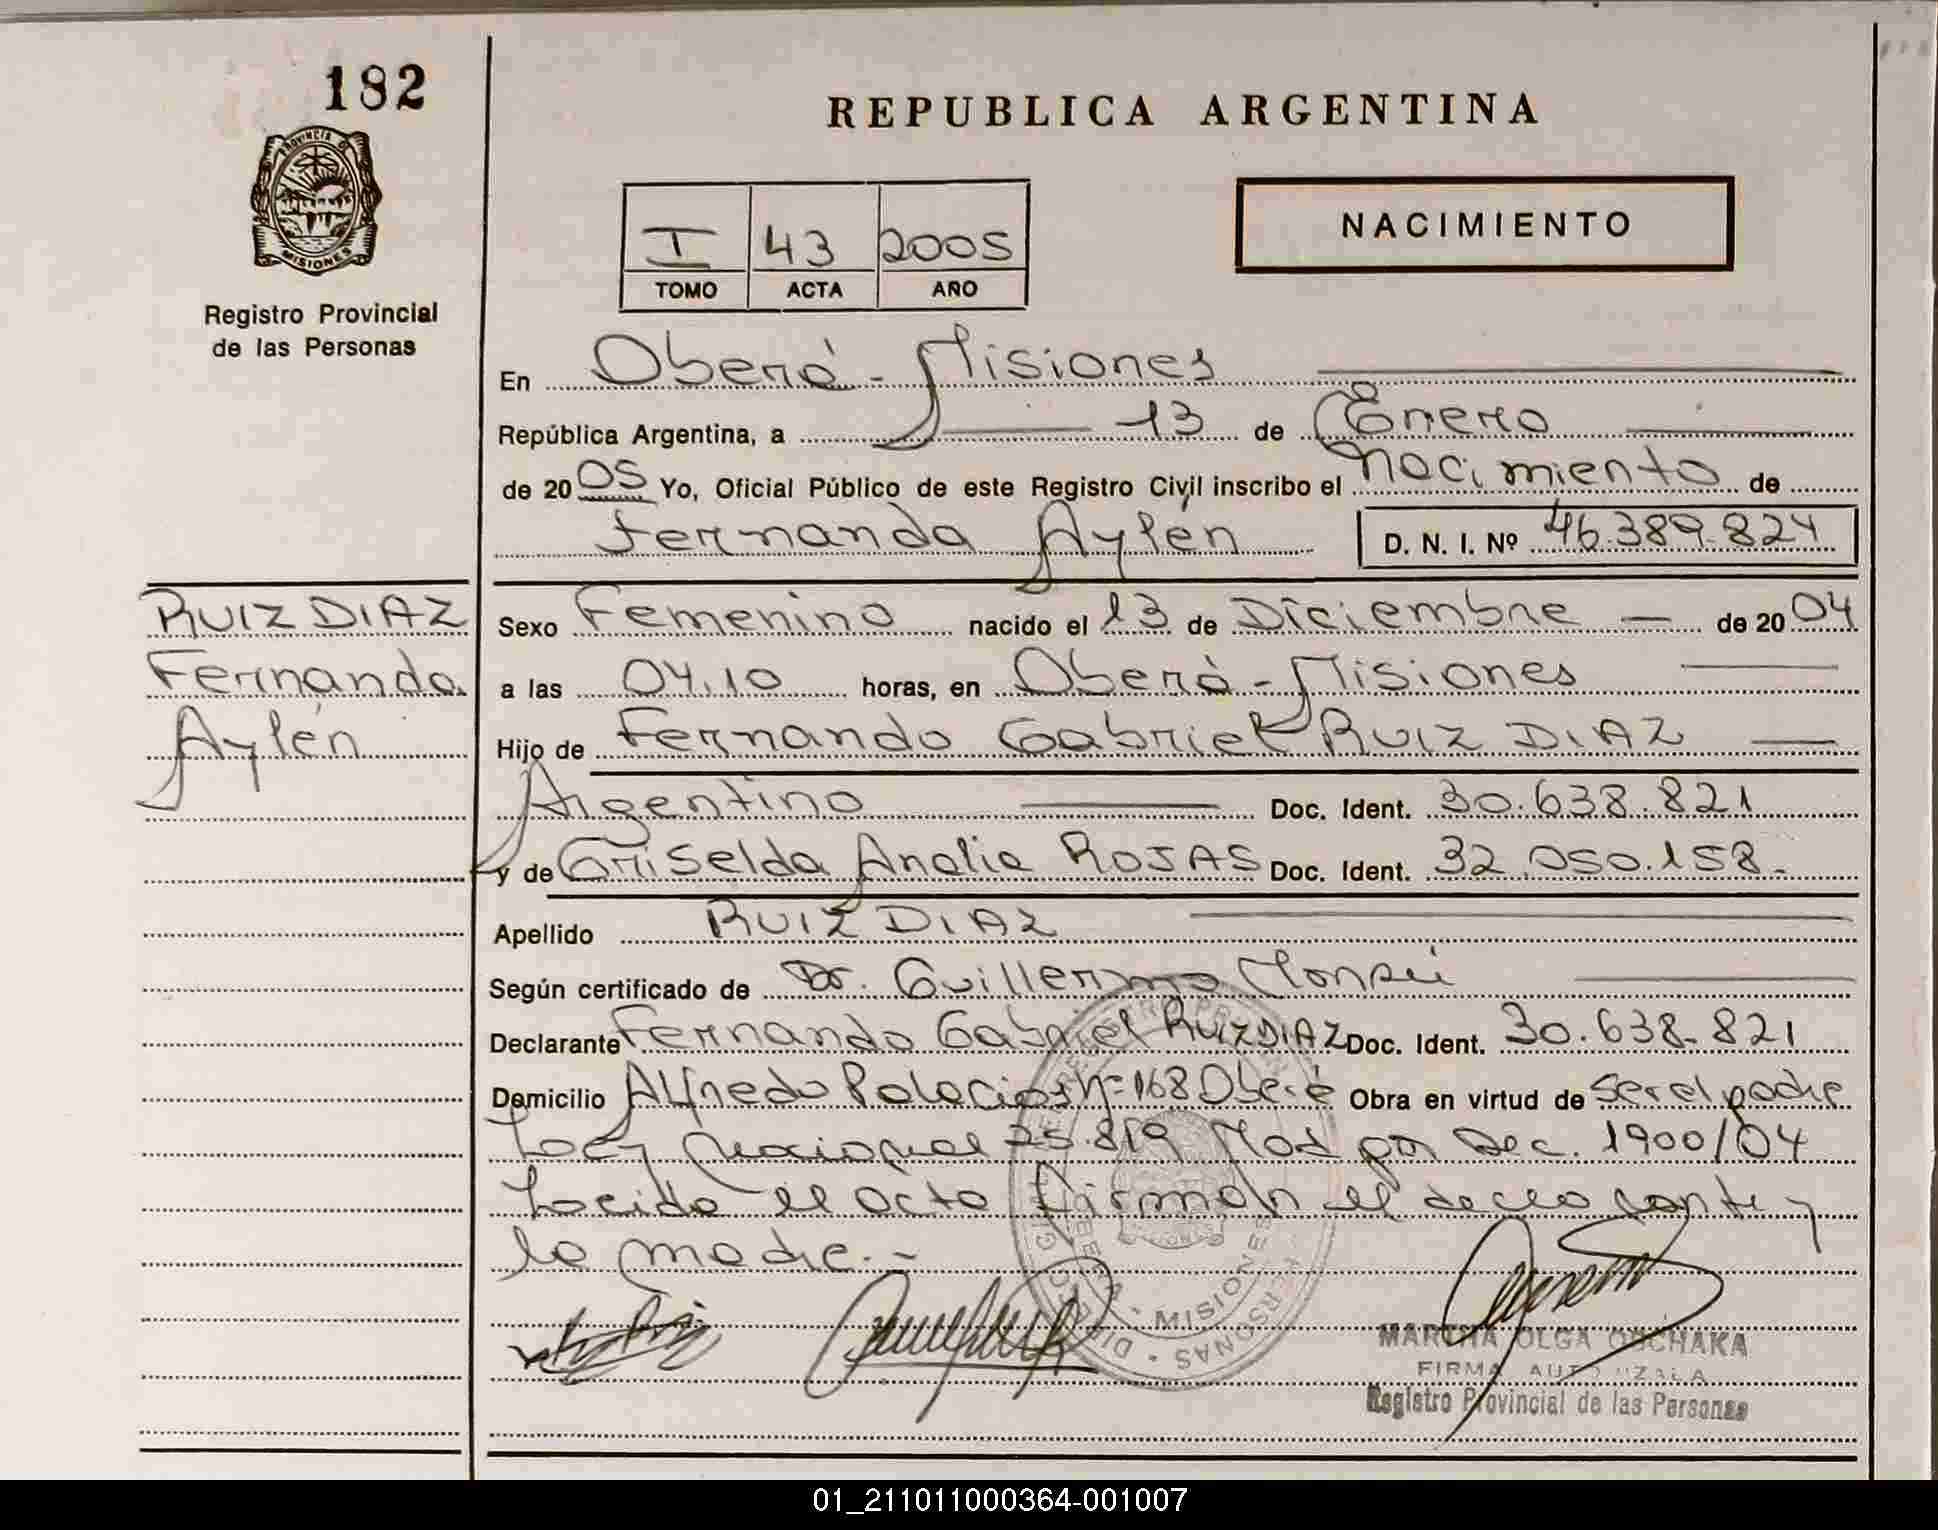 182
REPUBLICA ARGENTINA
PROVINCIA DE
MISIONES
Registro Provincial
de las Personas
I 43 2005
TOMO ACTA AÑO
NACIMIENTO
En Oberá - Misiones
República Argentina, a 13 de Enero
de 2005 Yo, Oficial Público de este Registro Civil inscribo el nacimiento de
Fernanda Aylén D. N. I. Nº 46.389.824
RUIZ DIAZ
Fernanda
Aylén
Sexo Femenino nacido el 13 de Diciembre de 2004
a las 04.10 horas, en Oberá - Misiones
Hijo de Fernando Gabriel RUIZ DIAZ
Argentino Doc. Ident. 30.638.821
y de Griselda Analia ROJAS Doc. Ident. 32.050.158.
Apellido RUIZ DIAZ
Según certificado de Dr. Guillermo
Declarante Fernando Gabriel RUIZ DIAZ Doc. Ident. 30.638.821
Domicilio Alfredo Palacios Nº 168 Oberá Obra en virtud de ser el padre
Ley Nacional 25.819 Mod por Dec. 1900/04
Leida el acta firman el declarante y
la madre.-
MISIONES
PERSONAS
MARTHA OLGA
FIRMA AUTORIZADA
Registro Provincial de las Personas
01_211011000364-001007